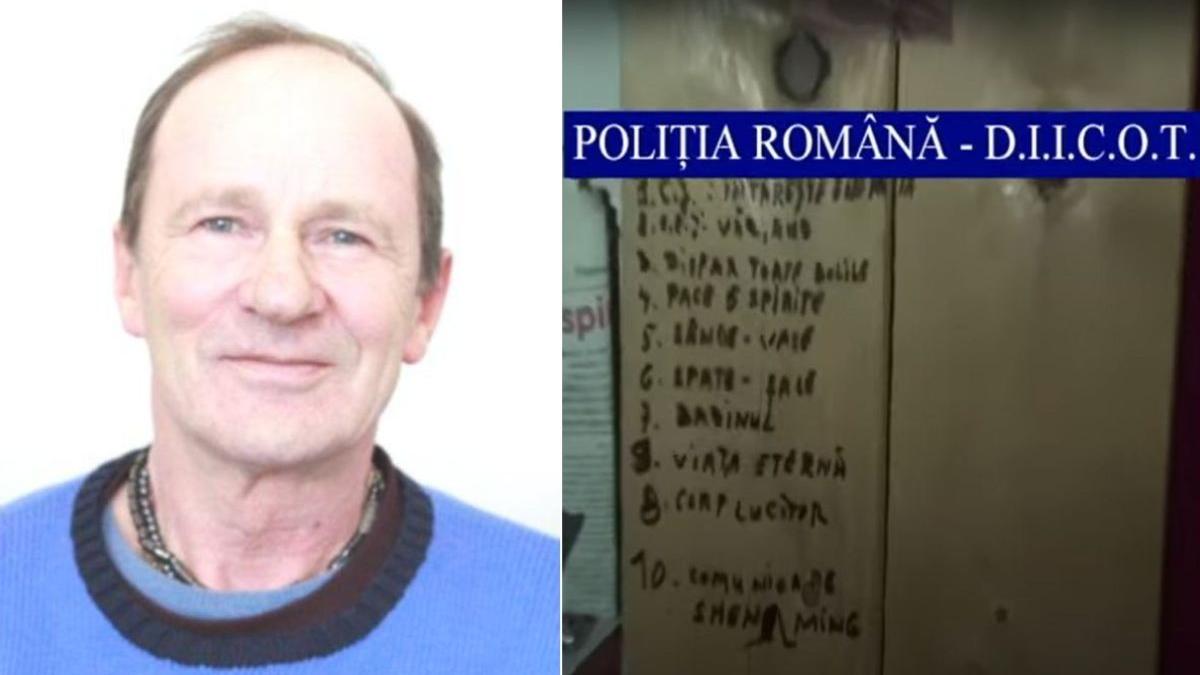 POLIȚIA ROMÂNĂ - D.I.I.C.O.T.
1. C.J. : ÎNTĂREȘTE
spi
3. DISPAR TOATE BOLILE
4. PACE 6 SPIRITE
5. SÂNGE - VASE
6. SPATE - ȘALE
7. BAZINUL
9. VIAȚA ETERNĂ
8. CORP LUCITOR
10. COMUNICARE
SHEN MING